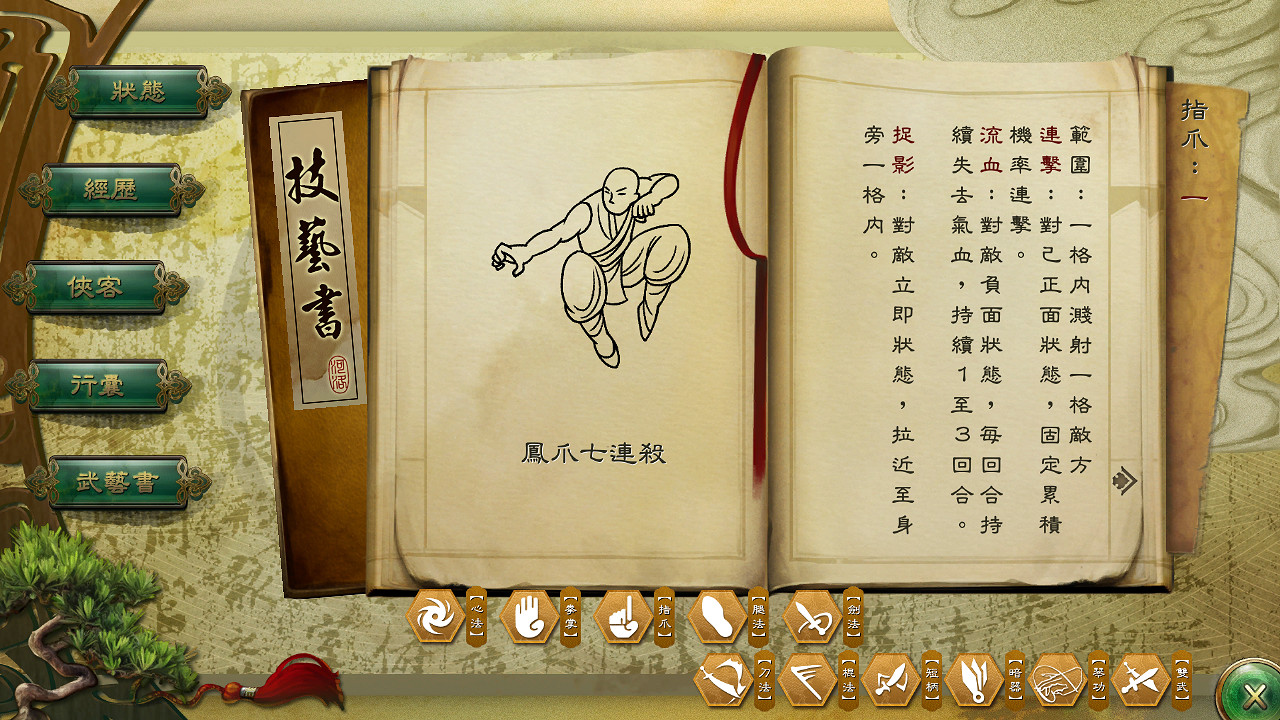 狀態
經歷
俠客
行囊
武藝書
技藝書
河洛
鳳爪七連殺
指爪：一
範圍：一格內濺射一格敵方
連擊：對己正面狀態，固定累積
機率連擊。
流血：對敵負面狀態，每回合持
續失去氣血，持續1至3回合。
捉影：對敵立即狀態，拉近至身
旁一格內。
【心法】
【拳掌】
【指爪】
【腿法】
【劍法】
【刀法】
【棍法】
【短柄】
【暗器】
【琴功】
【雙武】